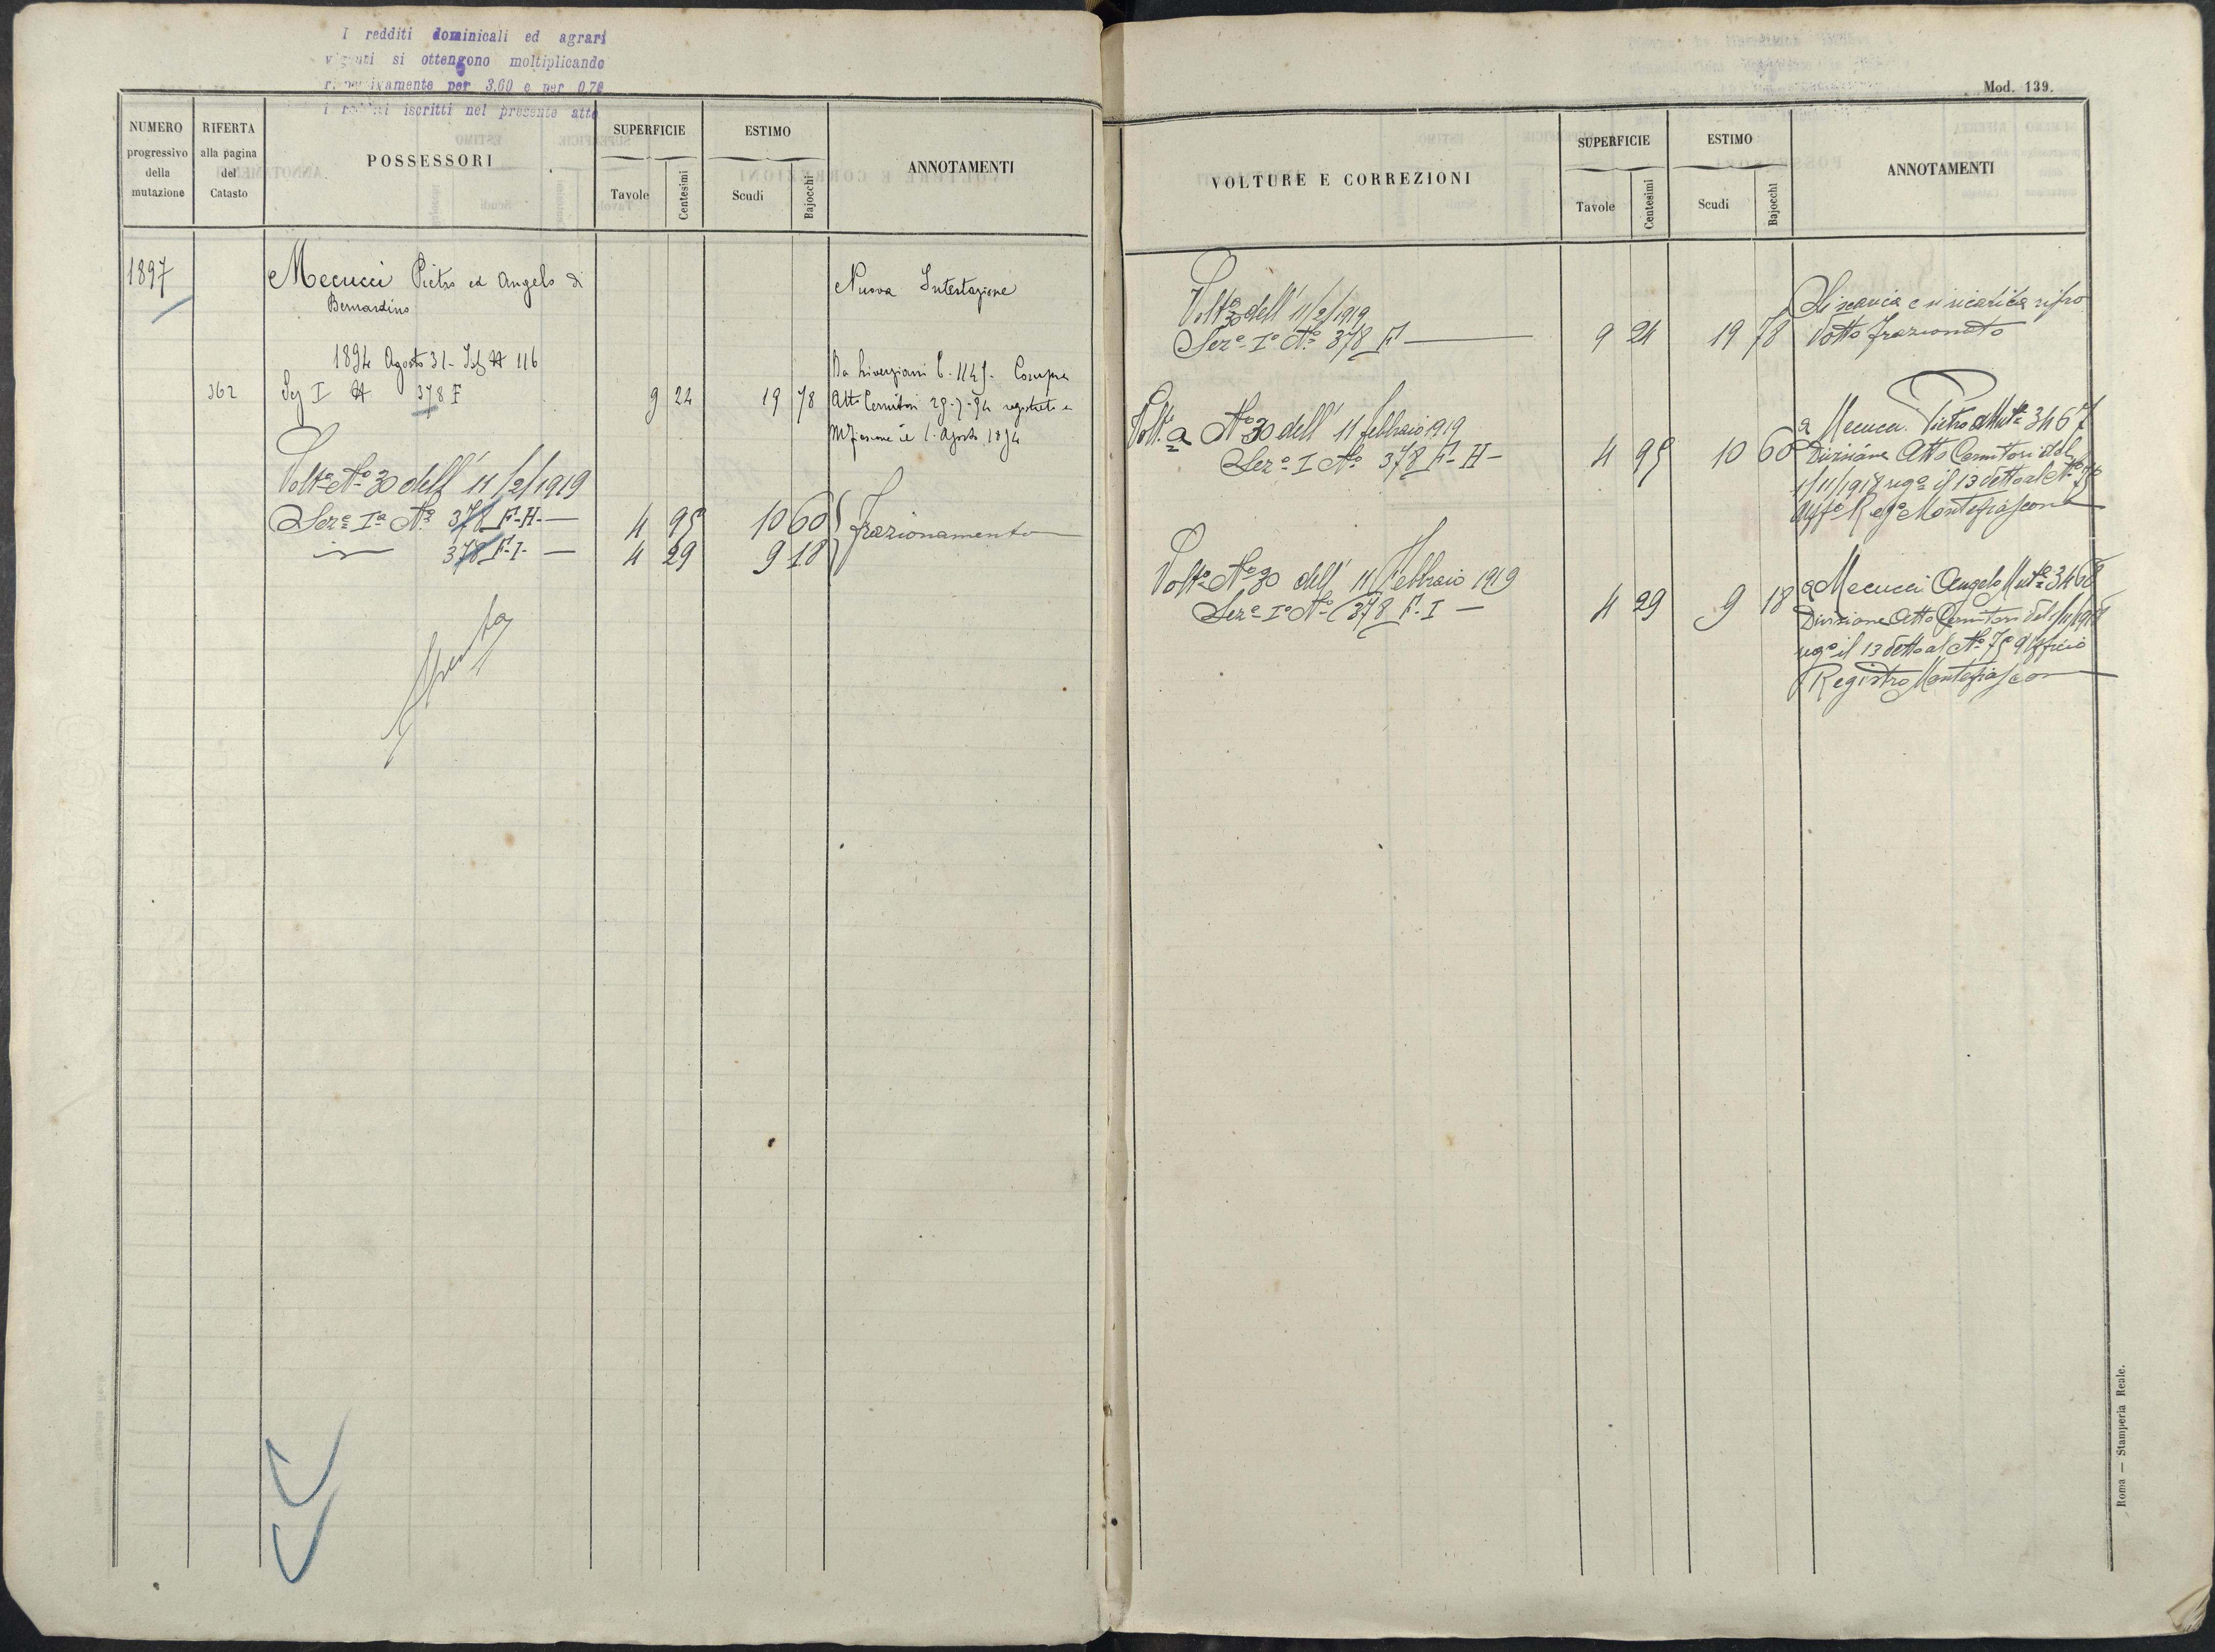 I redditi dominicali ed agrari
vigenti si ottengono moltiplicando
rispettivamente per 3,60 e per 0,70
i redditi iscritti nel presente atto
NUMERO progressivo della mutazione
RIFERTA alla pagina del Catasto
POSSESSORI
SUPERFICIE
Tavole Centesimi
ESTIMO
Scudi Bajocchi
ANNOTAMENTI
1897 Mecucci Pietro ed Angelo di Nuova Intestazione
Bernardino
1894 Agosto 31 - N 116
362 Sez I N 378 F 9 24 19 78
Da C. 1145. Compra
Atto Cernitori 29-7-94 registrato a
Mfiascone il 1. Agosto 1894
Volta No 30 dell' 11/2/1919
Seze Ia No 378 F-H- 4 95 10 60 Frazionamento
378 F-I- 4 29 9 18
Spenta
Mod. 139.
VOLTURE E CORREZIONI
SUPERFICIE
Tavole Centesimi
ESTIMO
Scudi Bajocchi
ANNOTAMENTI
Volta 30 dell' 11/2/1919
Seze Ia No 378 F 9 24 19 78
Si scarica e si ricarica
dotto frazionato
Volta No 30 dell' 11 febbraio 1919
Seze I No 378 F-H- 4 95 10 60
a Mecucci Pietro Muta 3467
Divisione Atto Cernitori del
1/11/1918 rega il 13 detto al No
Uffo Rego Montefiascone
Volta No 30 dell' 11 Febbraio 1919
Seze Ia No 378 F-I - 4 29 9 18
a Mecucci Angelo Muta 3468
Divisione Atto Cernitori del 1/11/1918
rego il 13 detto al No 75 Ufficio
Registro Montefiascon
Roma — Stamperia Reale.